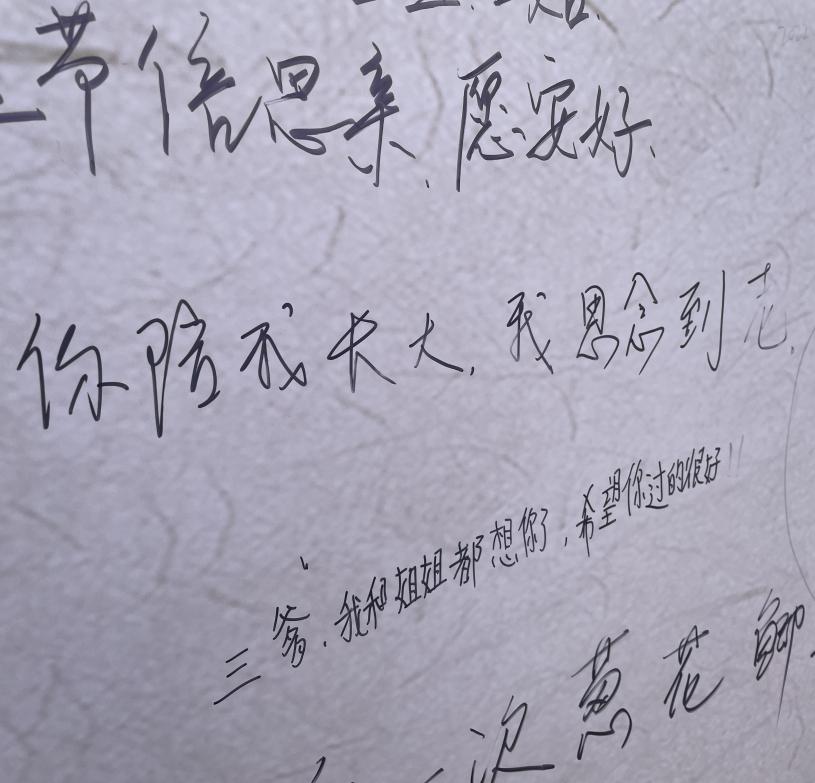 节倍思亲.愿安好.
你陪我长大.我思念到老.
三爷.我和姐姐都想你了,希望你过的很好!!
一次葱花鲫